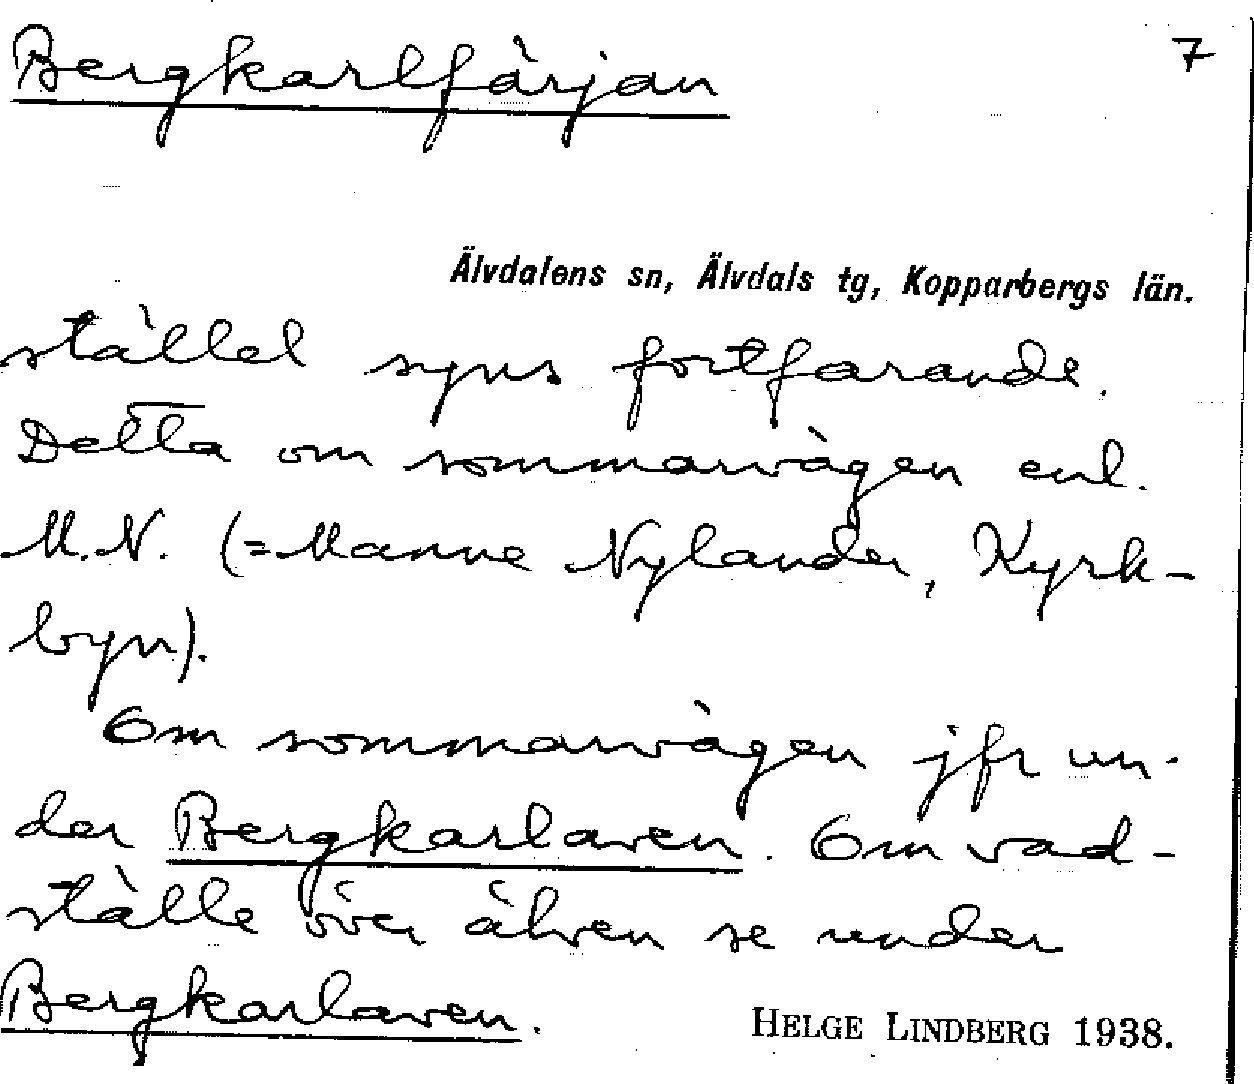 Bergkarlfärjan 7
Älvdalens sn, Älvdals tg, Kopparbergs län.
stället syns fortfarande.
Detta om sommarvägen enl.
M.N. (=Manne Nylander, Kyrk-
byn).
Om sommarvägen jfr un-
der Bergkarlaven. Om vad-
ställe över älven se under
Bergkarlaven.
HELGE LINDBERG 1938.